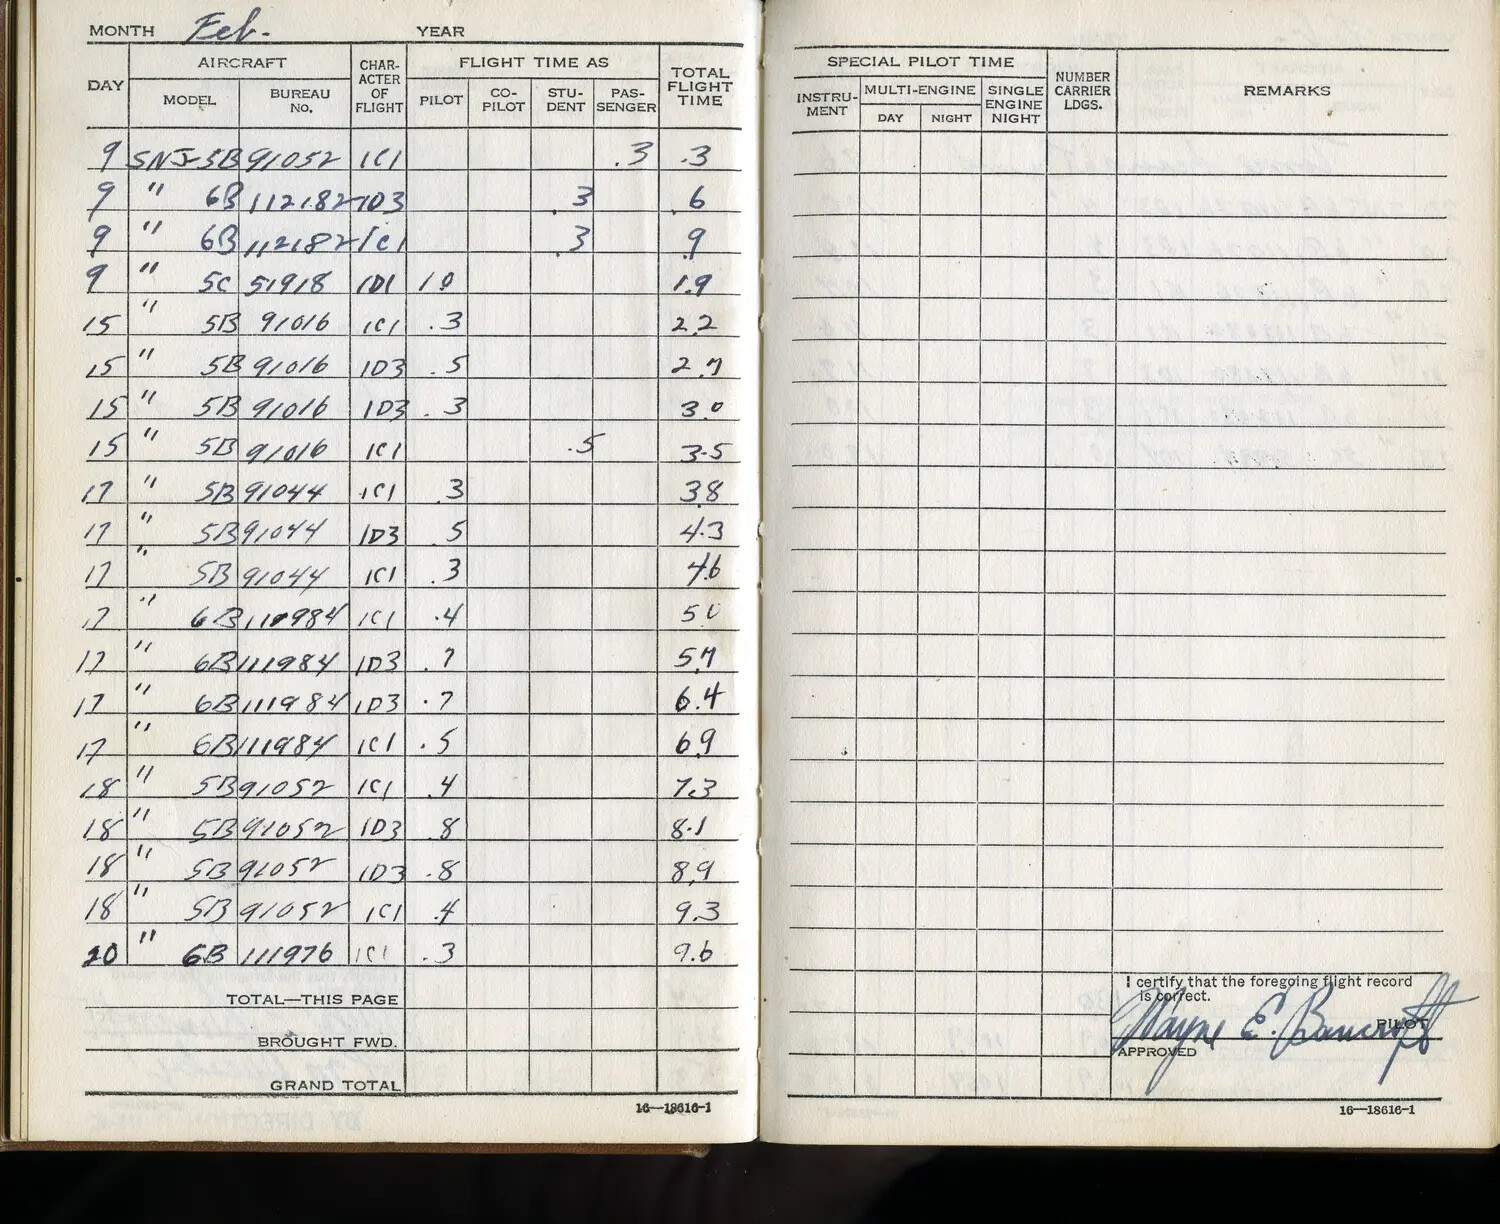 MONTH Feb. YEAR
DAY AIRCRAFT MODEL BUREAU No. CHARACTER OF FLIGHT FLIGHT TIME AS PILOT CO-PILOT STUDENT PASSENGER TOTAL FLIGHT TIME
9 SNJ-5B 91052 1C1 .3 .3
9 " 6B 112182 1D3 .3 .6
9 " 6B 112182 1C1 .3 .9
9 " 5C 51918 1D1 1.0 1.9
15 " 5B 91016 1C1 .3 2.2
15 " 5B 91016 1D3 .5 2.7
15 " 5B 91016 1D3 .3 3.0
15 " 5B 91016 1C1 .5 3.5
17 " 5B 91044 1C1 .3 3.8
17 " 5B 91044 1D3 .5 4.3
17 " 5B 91044 1C1 .3 4.6
17 " 6B 111984 1C1 .4 5.0
17 " 6B 111984 1D3 .7 5.7
17 " 6B 111984 1D3 .7 6.4
17 " 6B 111984 1C1 .5 6.9
18 " 5B 91052 1C1 .4 7.3
18 " 5B 91052 1D3 .8 8.1
18 " 5B 91052 1D3 .8 8.9
18 " 5B 91052 1C1 .4 9.3
20 " 6B 111976 1C1 .3 9.6
TOTAL—THIS PAGE
BROUGHT FWD.
GRAND TOTAL
16—18616-1
SPECIAL PILOT TIME INSTRUMENT MULTI-ENGINE DAY NIGHT SINGLE ENGINE NIGHT NUMBER CARRIER LDGS. REMARKS
I certify that the foregoing flight record
is correct.
Wayne E. Bancroft
PILOT
APPROVED
16—18616-1